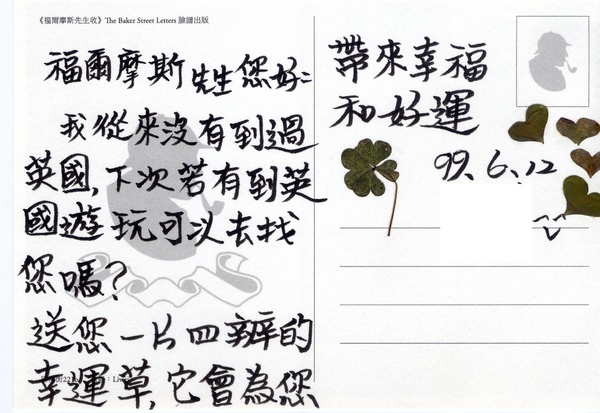 《福爾摩斯先生收》The Baker Street Letters 臉譜出版
福爾摩斯先生您好:
我從來沒有到過
英國,下次若有到英
國遊玩可以去找
您嗎?
送您一片四辦的
幸運草,它會為您
帶來幸福
和好運
99.6.12